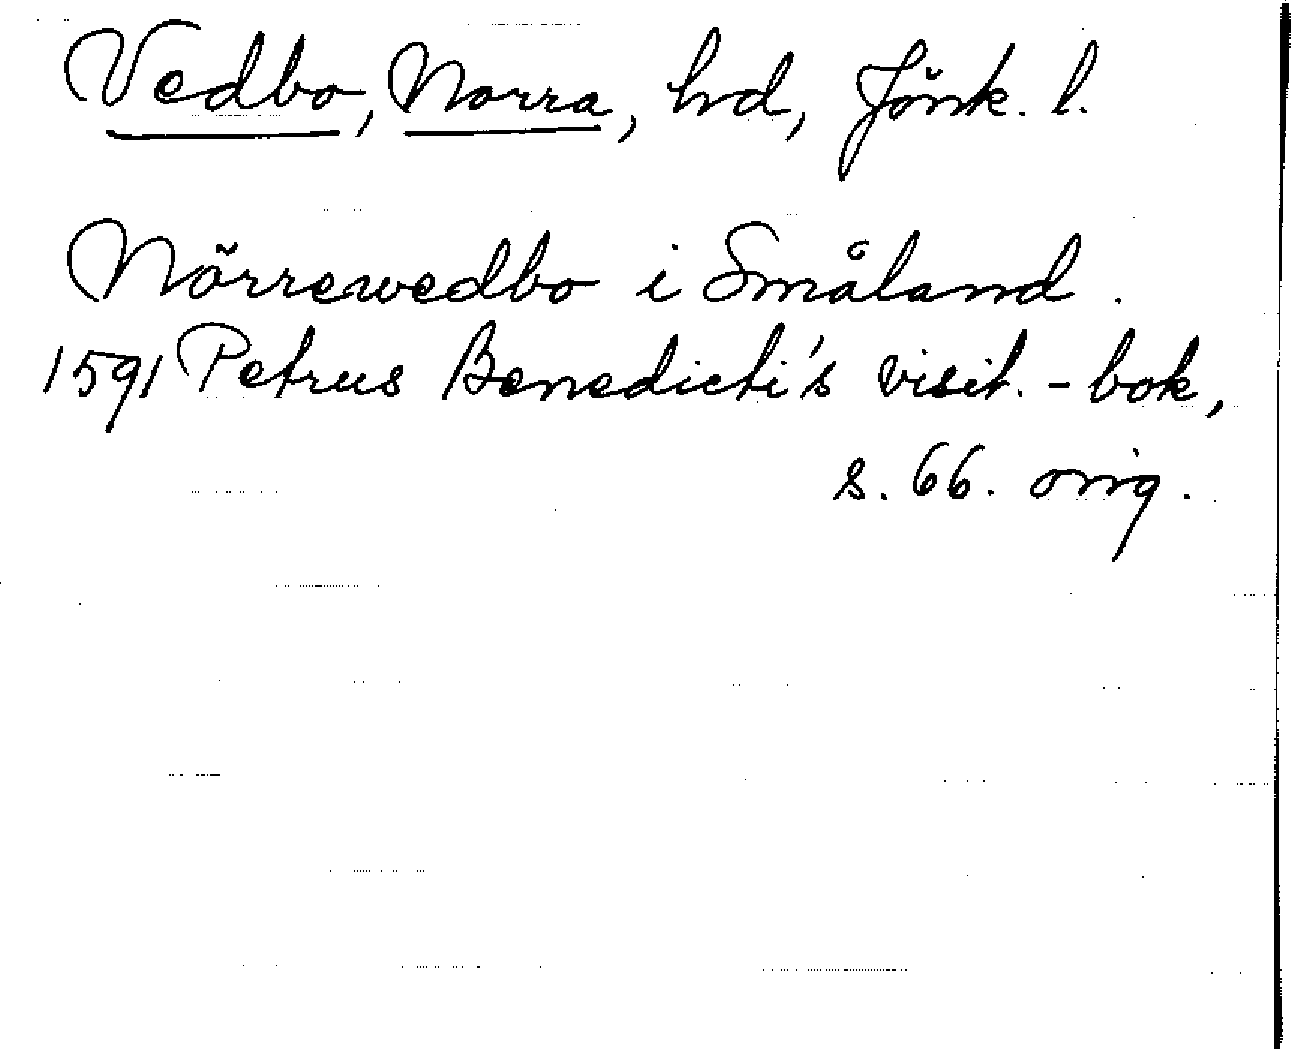 Vedbo, Norra, hrd, Jönk. l.
Nörrewedbo i Småland.
1591 Petrus Benedicti's visit.-bok,
s. 66. orig.